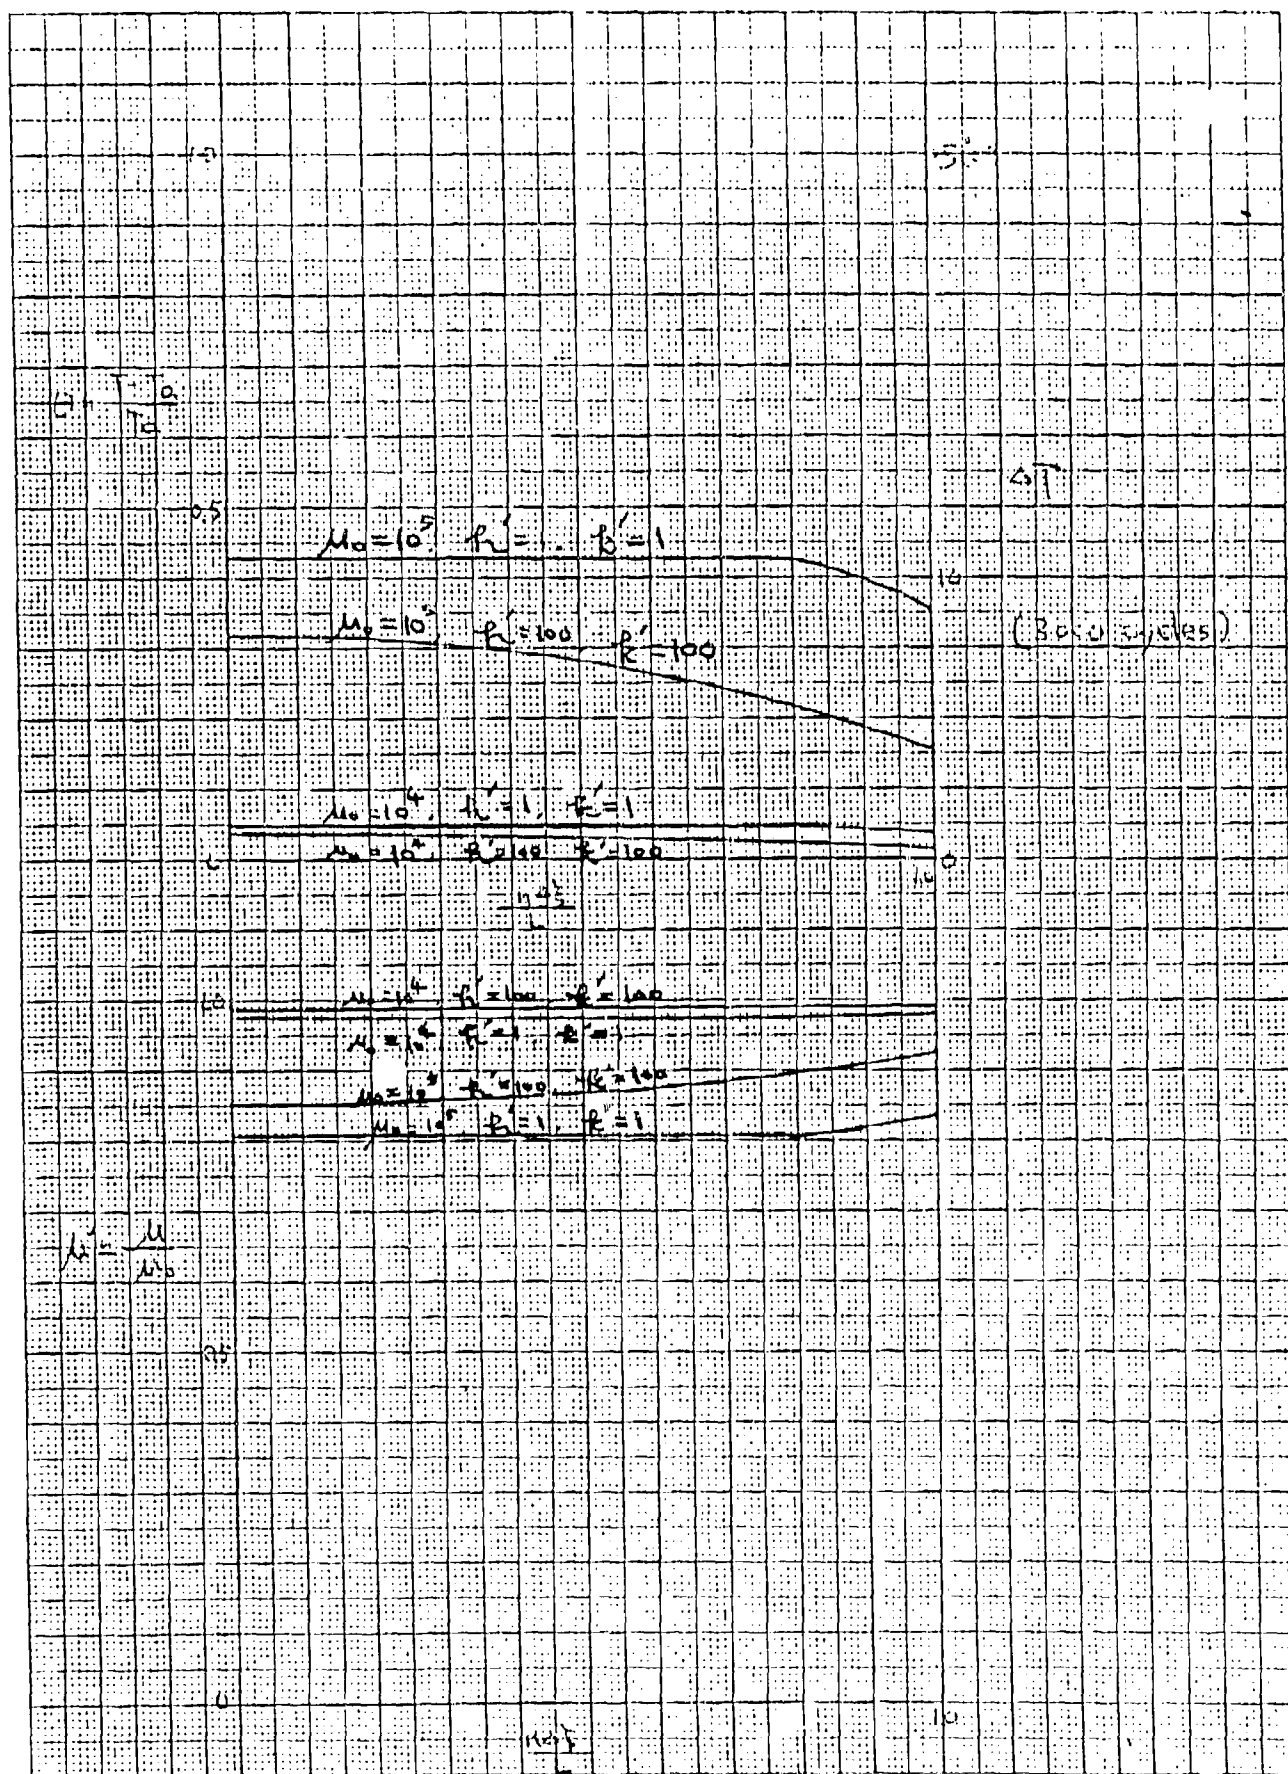 1.0
T - Ta
Ta
ΔT
0.5
μ₀ = 10⁵, h' = 1, k' = 1
10
μ₀ = 10⁵ h' = 100 k' = 100
μ₀ = 10⁴, h' = 1, k' = 1
μ₀ = 10⁴, h' = 100 k' = 100
0
1.0
0
1.0
μ₀ = 10⁴, h' = 100, k' = 100
μ₀ = 10⁴, h' = 1, k' = 1
μ₀ = 10⁵ h' = 100, k' = 100
μ₀ = 10⁵, h' = 1, k' = 1
μ' = μ
μ₀
0.5
0
1.0